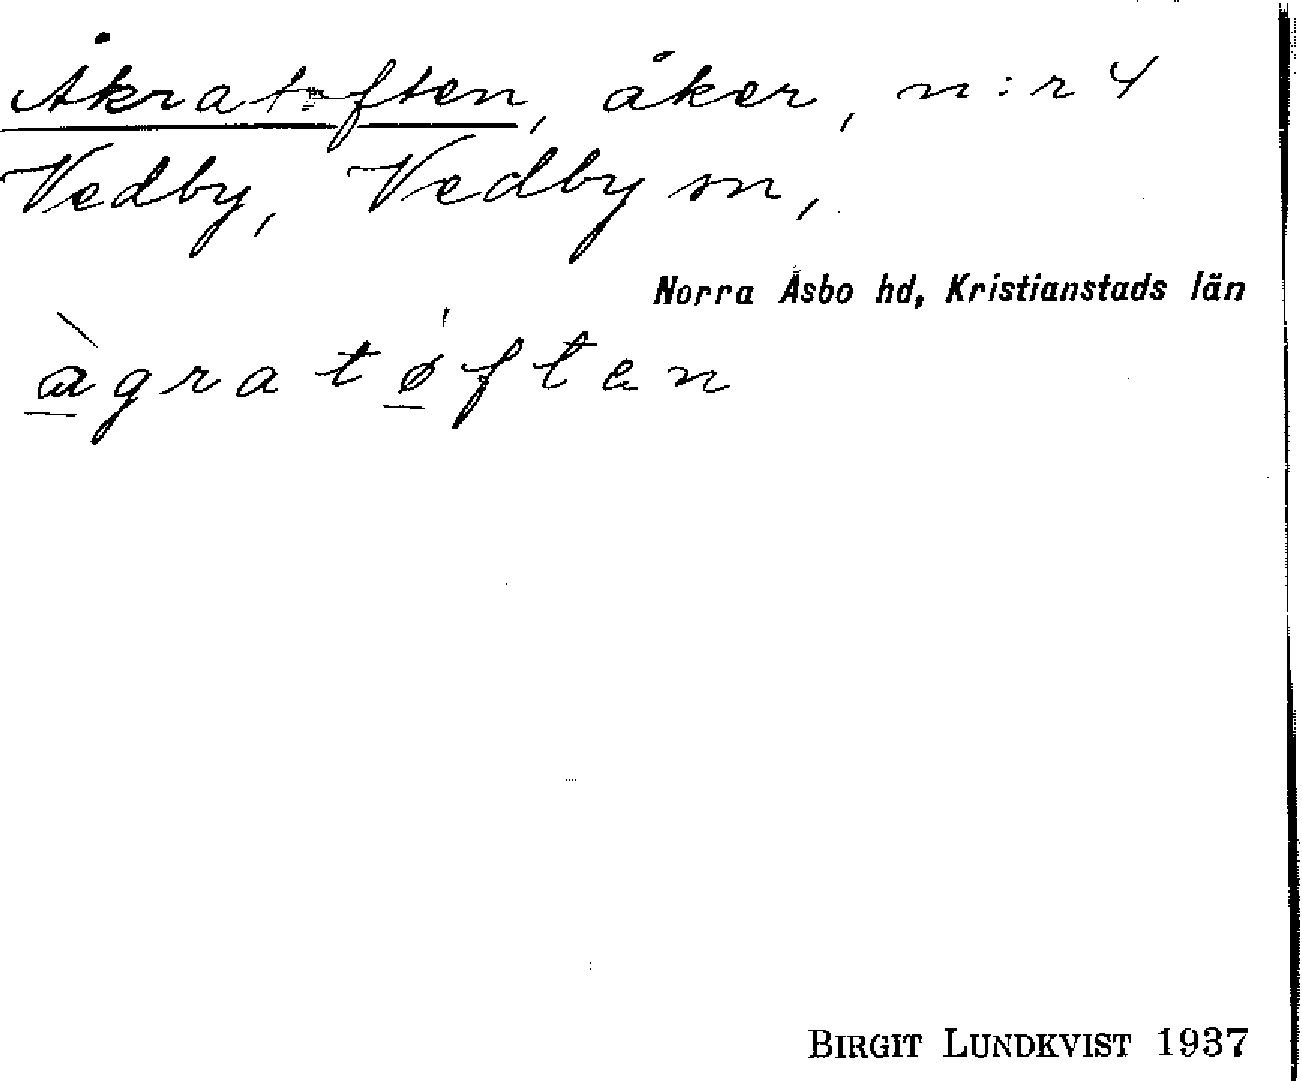 Åkratoften, åker, n:r 4
Vedby, Vedby sn,
Norra Åsbo hd, Kristianstads län
àgratøften
BIRGIT LUNDKVIST 1937